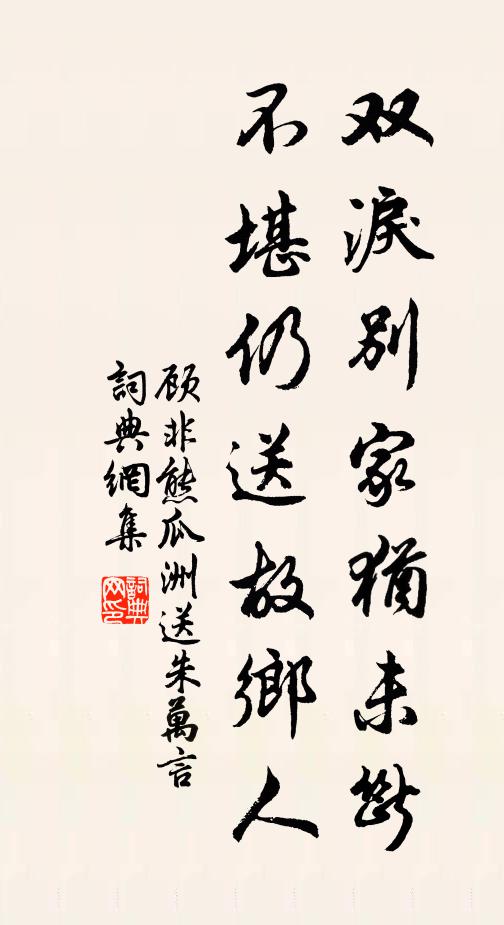 双淚别家猶未斷
不堪仍送故鄉人
顾非熊瓜洲送朱萬言
詞典網集
詞典
网印